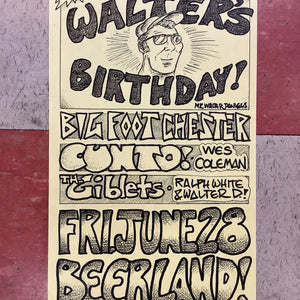 WALTER'S
BIRTHDAY!
MR. WALTER DANIELS
BIG FOOT CHESTER
CUNTO! WES
COLEMAN
THE Giblets · RALPH WHITE
& WALTER D!
FRI. JUNE 28
BEERLAND!